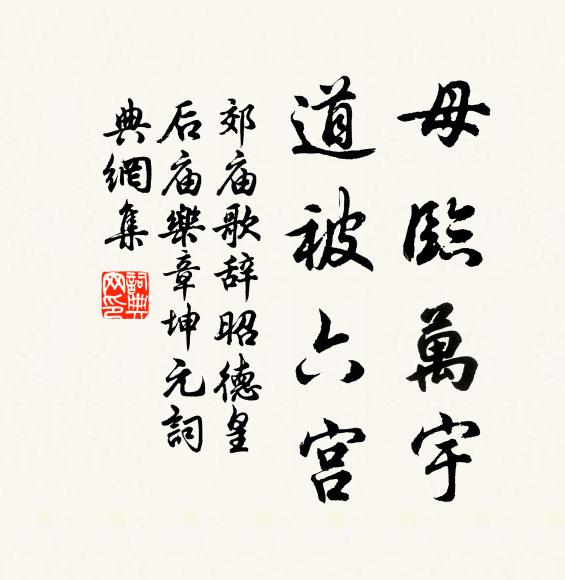 母臨萬宇
道被六宮
郊庙歌辞昭德皇
后庙樂章坤元詞
典網集
詞典網印